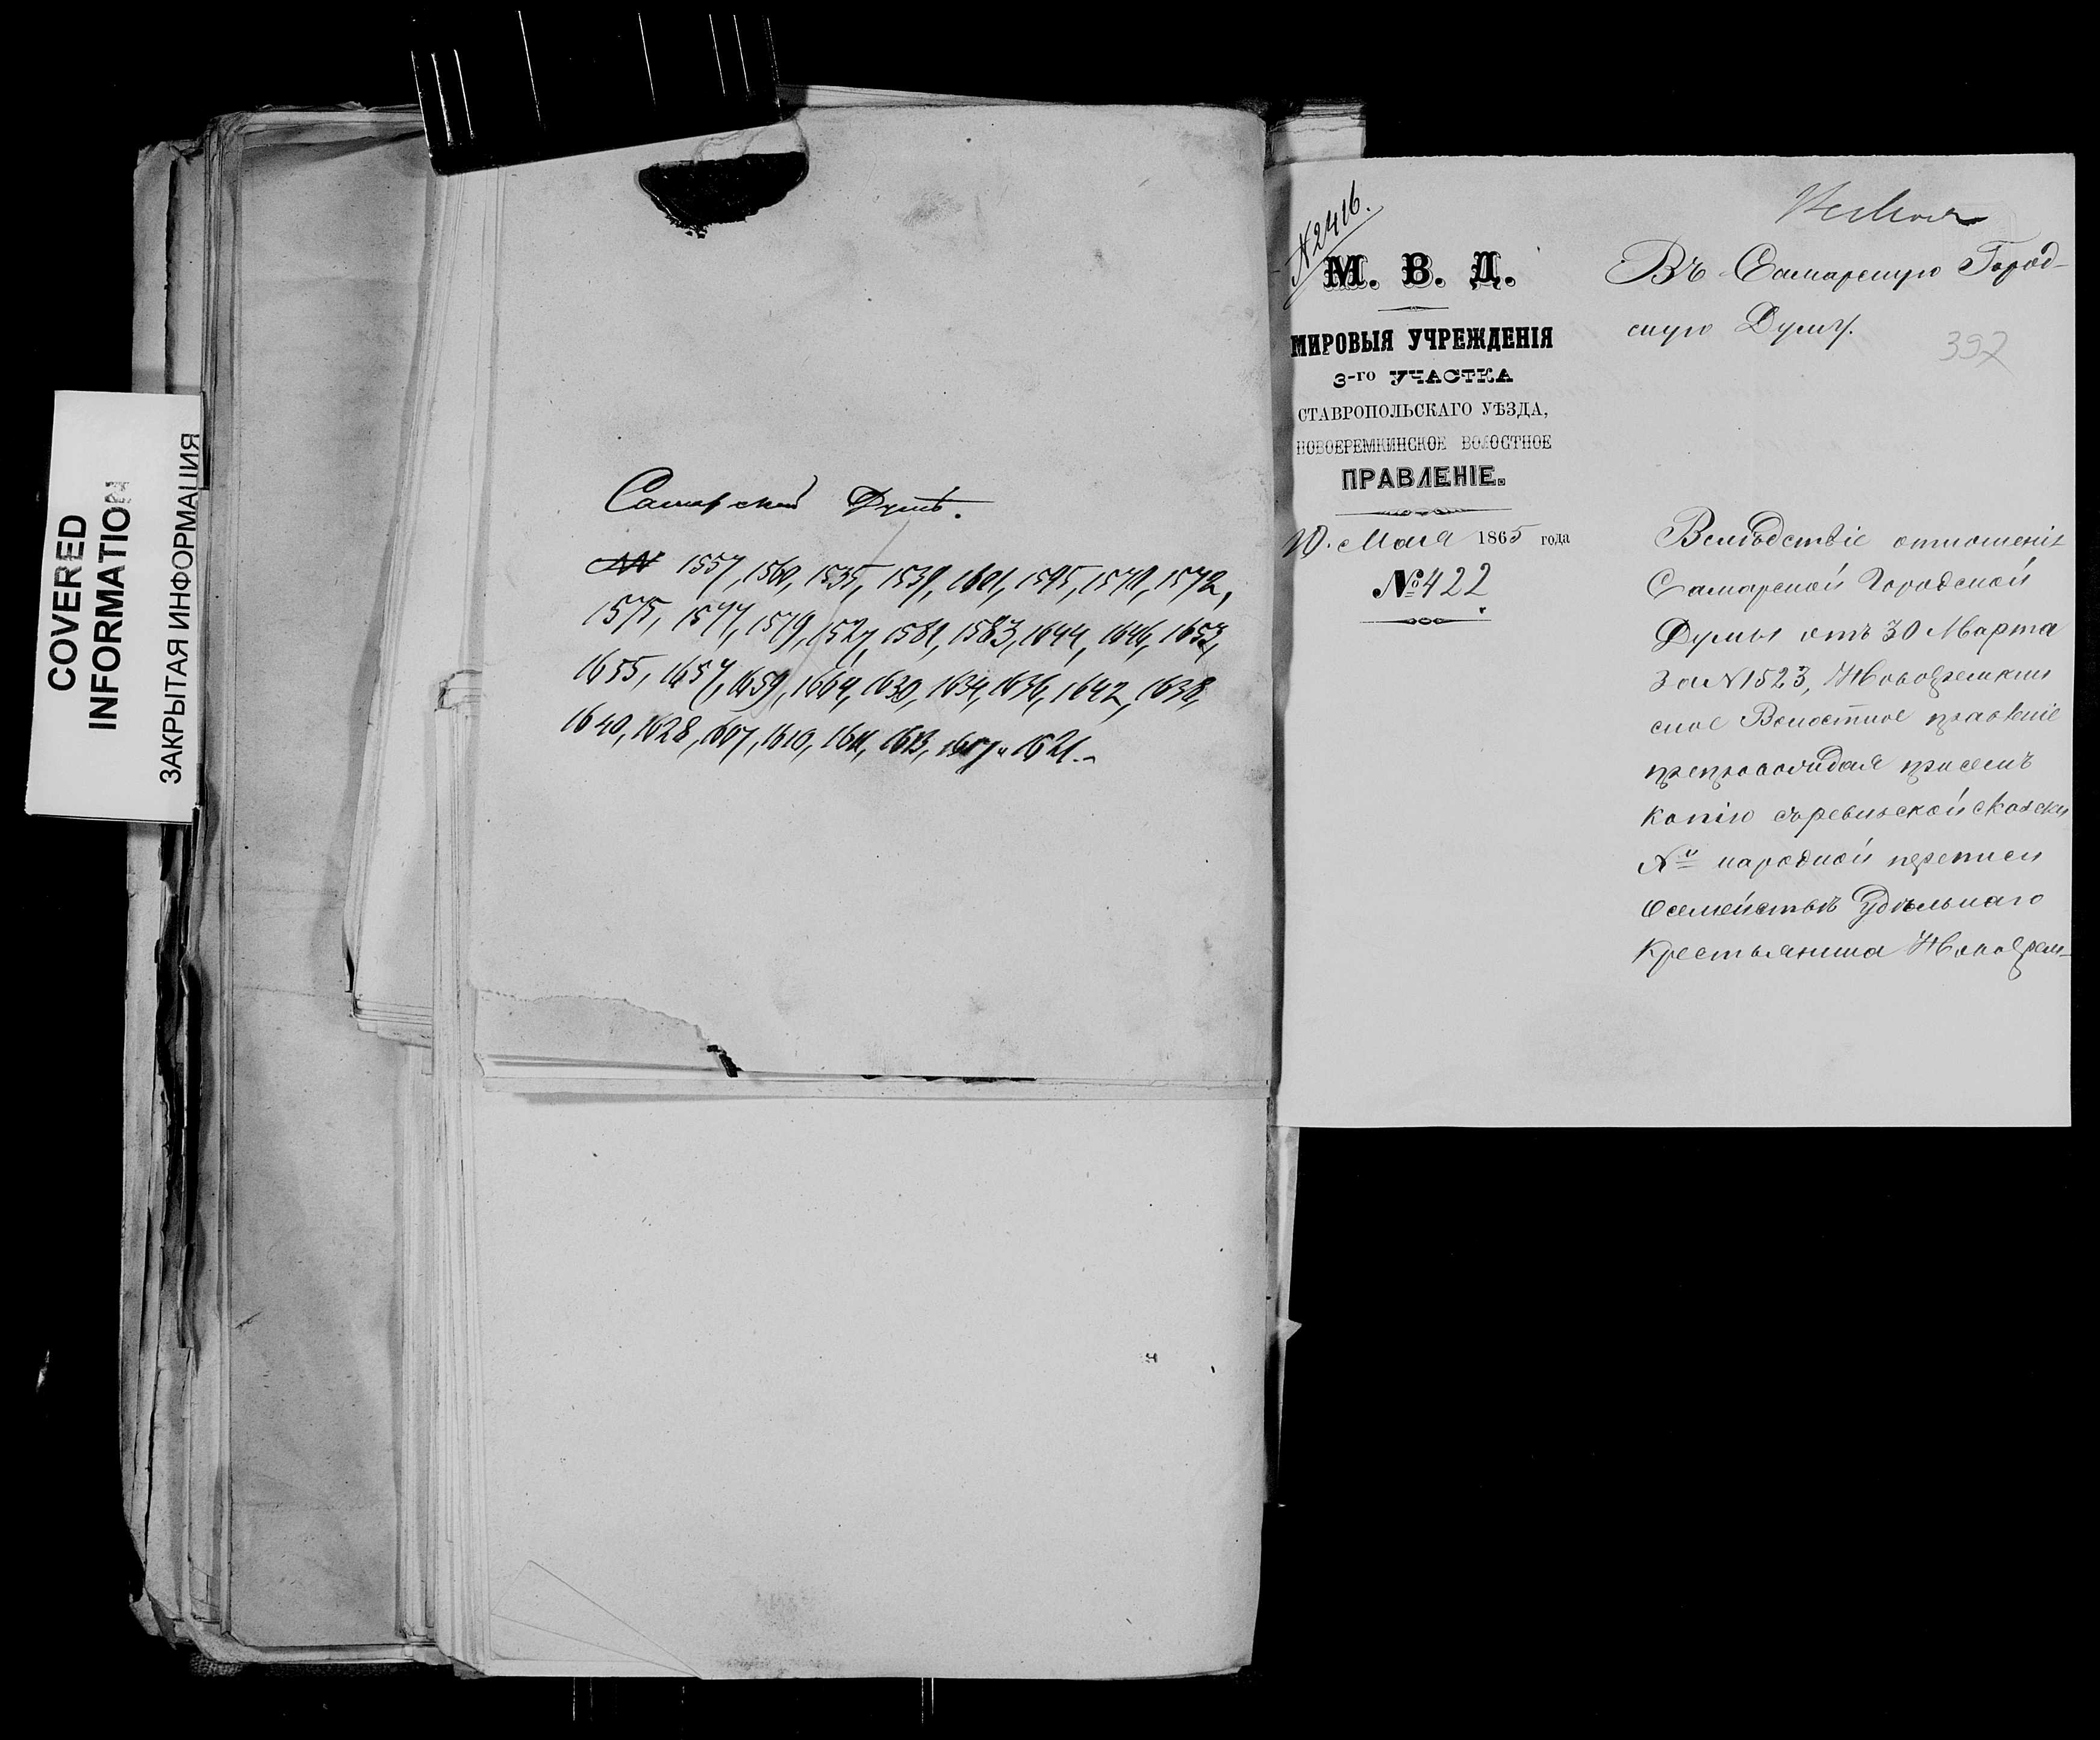 COVERED
INFORMATION
ЗАКРЫТАЯ ИНФОРМАЦИЯ
Самарской Думѣ.
№№ 1557, 1560, 1535, 1539, 1601, 1595, 1570, 1572,
1575, 1577, 1579, 1527, 1581, 1583, 1644, 1646, 1653,
1655, 1657, 1659, 1664, 1630, 1634, 1636, 1642, 1638,
1640, 1628, 1607, 1610, 1611, 1613, и 1621.
№ 2416.
М. В. Д.
МИРОВЫЯ УЧРЕЖДЕНІЯ
3-го УЧАСТКА
СТАВРОПОЛЬСКАГО УѢЗДА,
НОВОЕРЕМКИНСКОЕ ВОЛОСТНОЕ
ПРАВЛЕНІЕ.
10. Мая 1865 года
№ 422
Въ Самарскую Город-
скую Думу.
397
Вслѣдствіе отношенія
Самарской Городской
Думы отъ 30 Марта
За № 1523, Новоеремкин
ское Волостное правленіе
препровождая присемъ
копію съ ревизской сказки
народной переписи
о семействѣ Удѣльнаго
Крестьянина Новоерем-